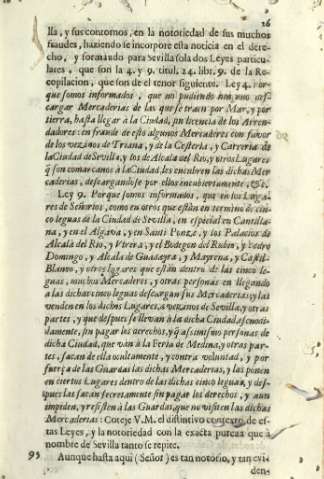 26
lla, y sus contornos, en la notoriedad de sus muchos
fraudes, haziendo se incorpore esta noticia en el dere-
cho, y formando para Sevilla sola dos Leyes particu-
lares, que son la 4. y 9. titul. 24. libr. 9. de la Re-
copilacion, que son de el tenor siguiente. Ley 4. Por-
que somos informados, que no pudiendo
cargar Mercaderias de las que se traen por Mar, y por
tierra, hasta llegar à la Ciudad, sin licencia de los Arren-
dadores: en fraude de esto algunos Mercaderes con favor
de los vezinos de Triana, y de la Cesteria, y Carreria de
la Ciudad de Sevilla, y los de Alcalà del Rio, y otros Lugares
q̃ son comarcanos à la Ciudad, les encubren las dichas Mer-
caderias, descargandose por ellos encubiertamente, &c.
Ley 9. Porque somos informados, que en los Luga-
res de Señorios, como en otros que estàn en termino de cin-
co leguas de la Ciudad de Sevilla, en especial en Cantilla-
na, y en el Algava, y en Santi Ponze, y los Palacios de
Alcalà del Rio, y Vtrera, y el Bodegon del Rubio, y Pedro
Domingo, y Alcala de Guadayra, y Mayrena, y Castil-
Blanco, y otros lugares que estàn dentro de las cinco le-
guas, muchos Mercaderes, y otras personas en llegando
à las dichas cinco leguas descargan sus Mercaderias, y las
venden en los dichos Lugares, à vezinos de Sevilla, y otras
partes, y que despues se llevan à la dicha Ciudad ascondi-
damente, sin pagar los derechos, y q̃ assimismo personas de
dicha Ciudad, que vàn à la Feria de Medina, y otras par-
tes, sacan de ella ocultamente, y contra voluntad, y por
fuerça de las Guardas las dichas Mercaderias, y las ponen
en ciertos Lugares dentro de las dichas cinco leguas, y des-
pues las sacan secretamente sin pagar derechos, y aun
impiden, y resisten à las Guardas, que no visiten las dichas
Mercaderias: Coteje V.M. el distintivo contexto, de es-
tas Leyes, y la notoriedad con la exacta pureza que à
nombre de Sevilla tanto se repite.
93 Aunque hasta aqui (Señor) es tan notorio, y tan evi-
den-